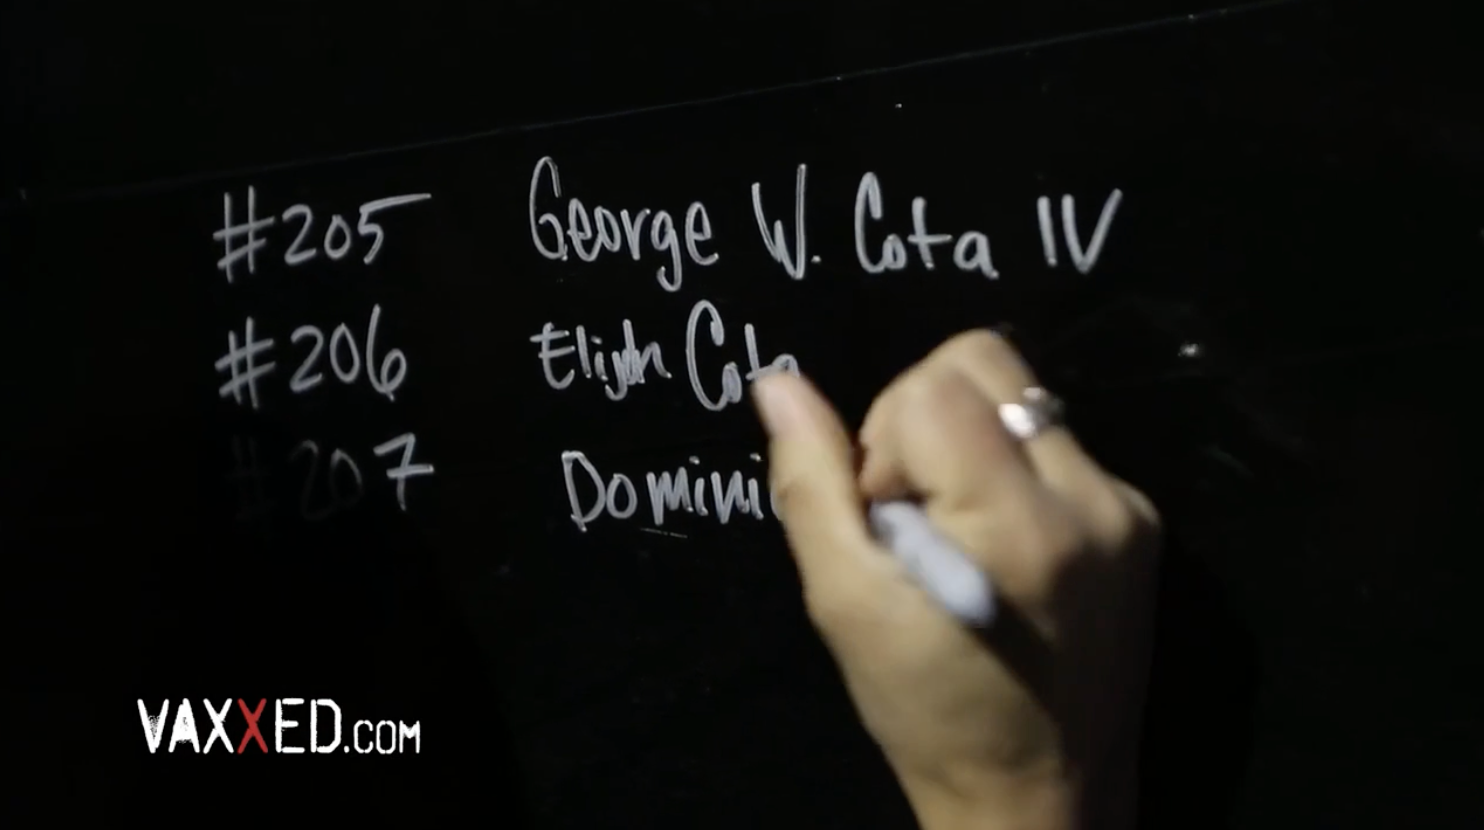 #205 George W. Cota IV
#206 Elijah Cota
#207 Domini
VAXXED.COM